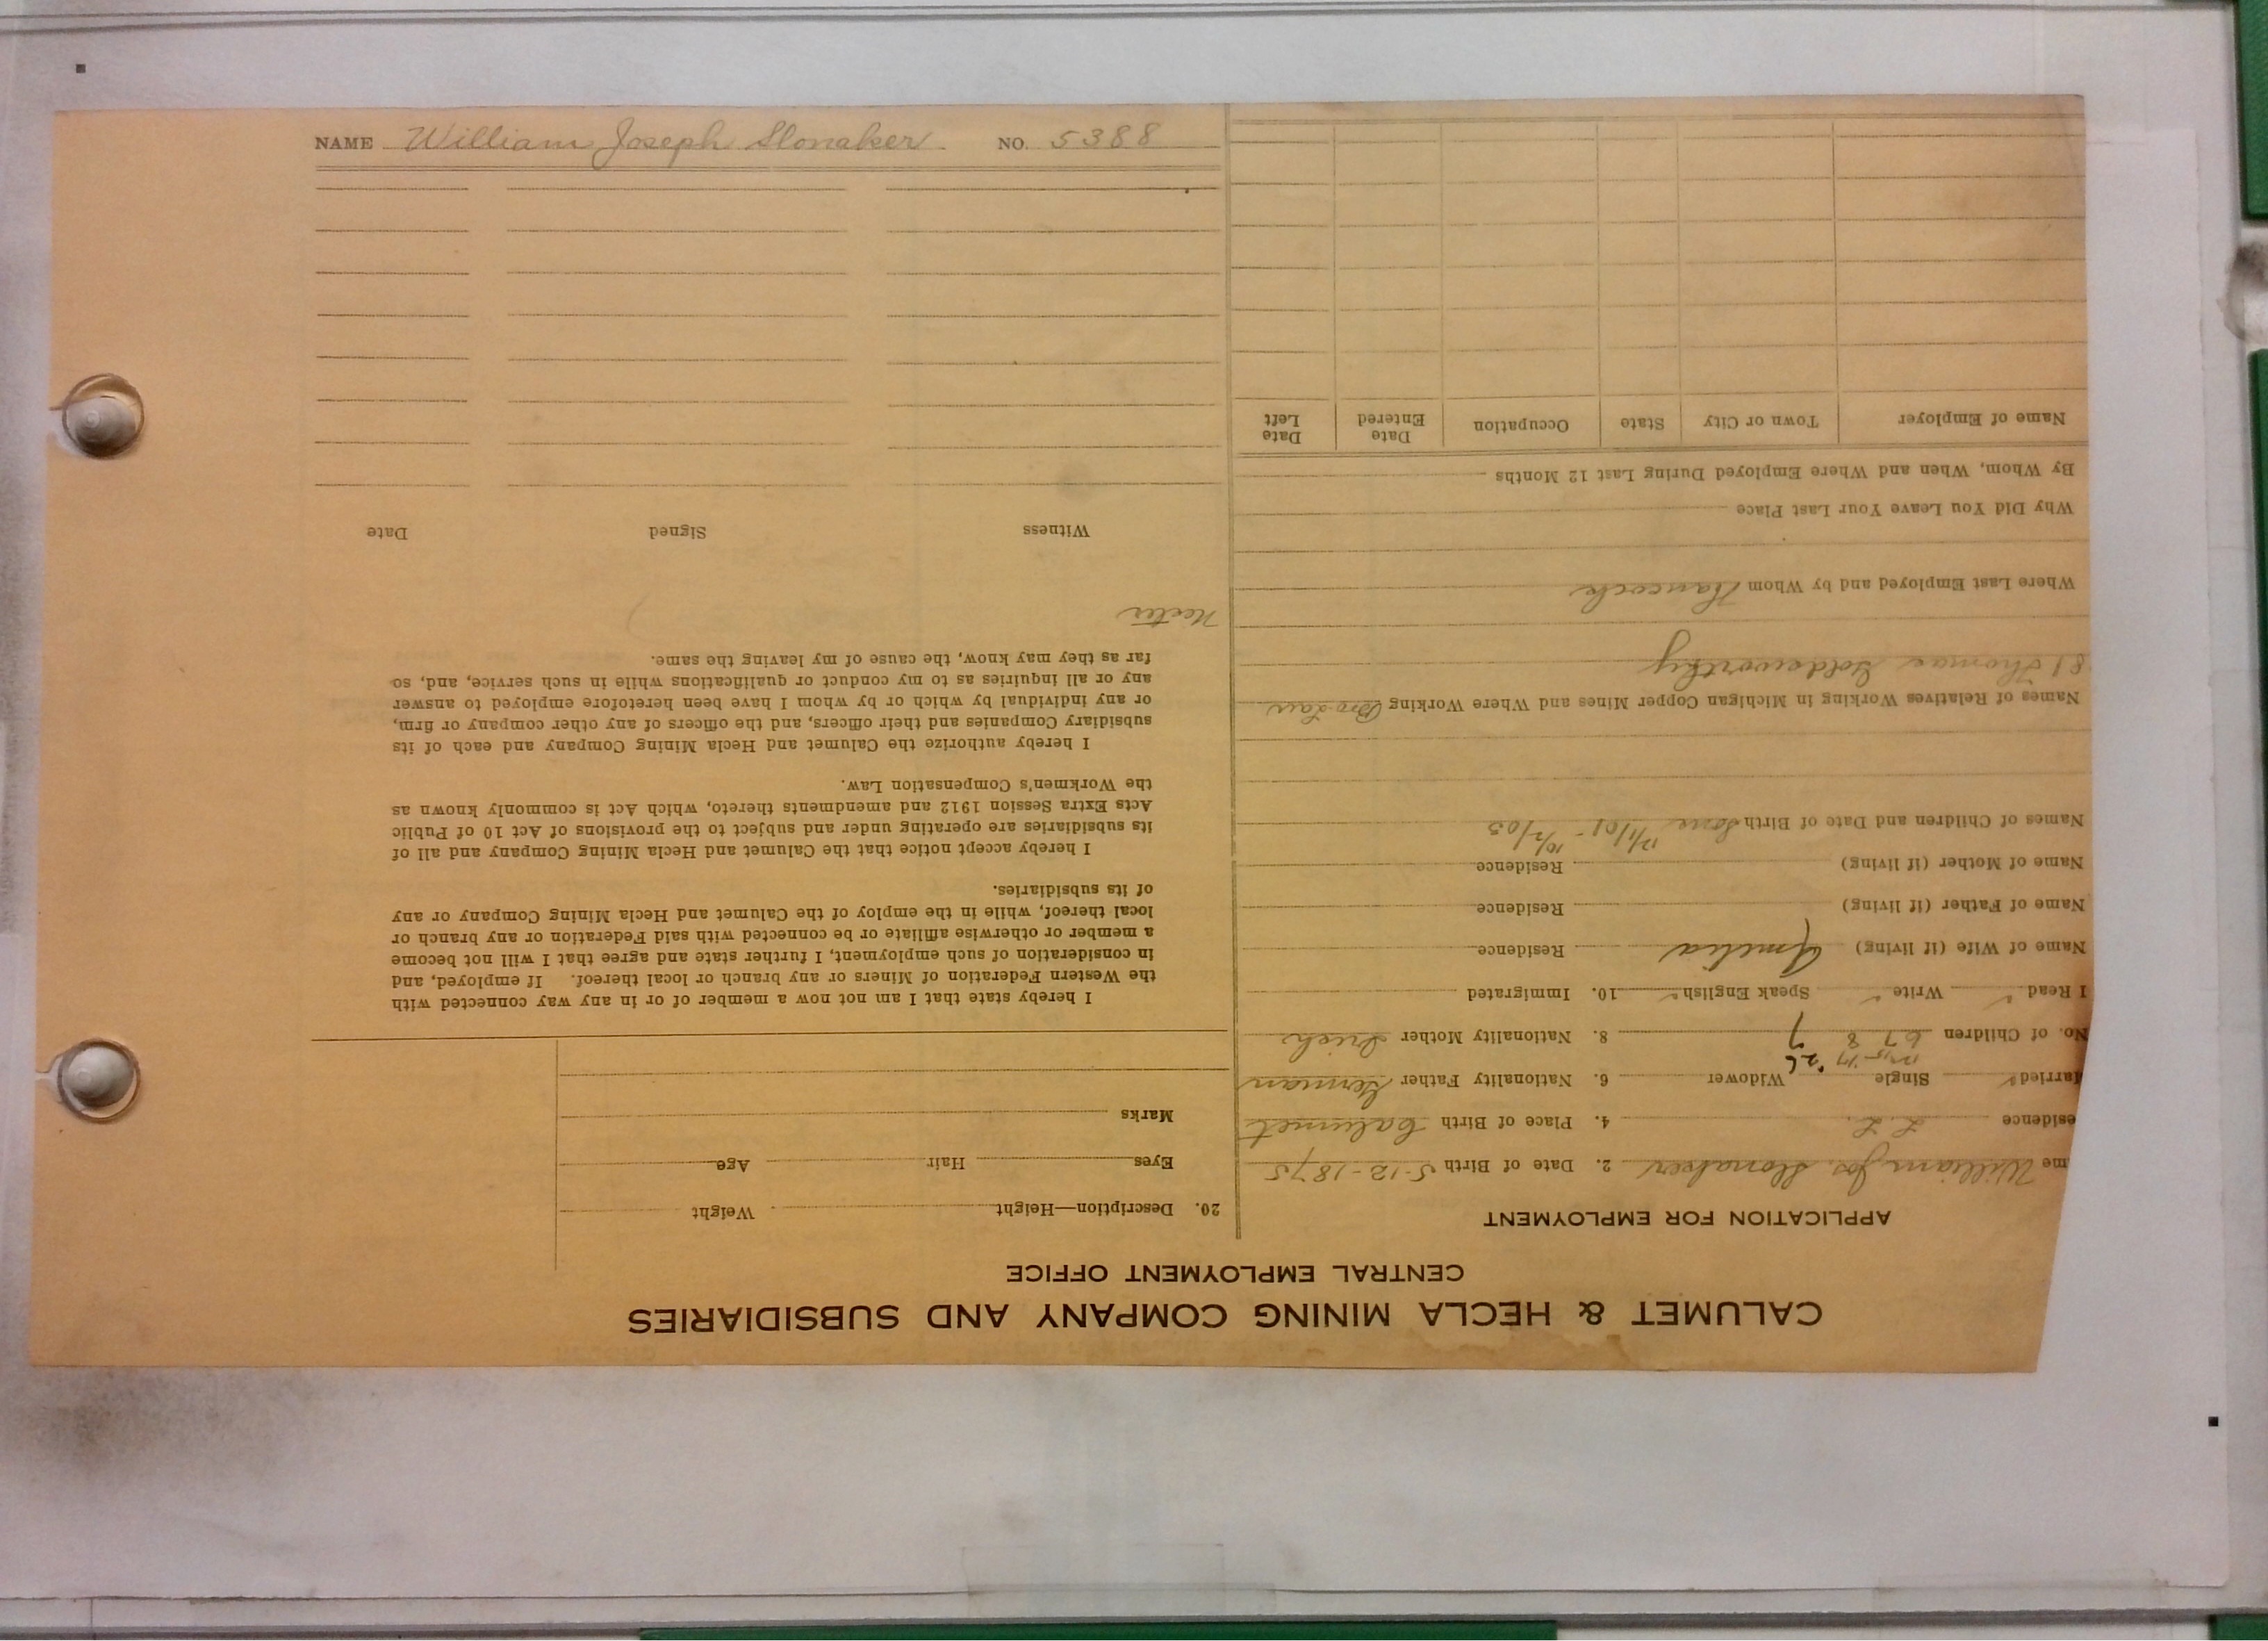 CALUMET & HECLA MINING COMPANY AND SUBSIDIARIES
CENTRAL EMPLOYMENT OFFICE
APPLICATION FOR EMPLOYMENT
me William Jos. Slonaker 2. Date of Birth 5-12-1875
esidence L. L. 4. Place of Birth Calumet
arried Single Widower 6. Nationality Father German
No. of Children 6 7 8 7 8. Nationality Mother Irish
I Read Write Speak English 10. Immigrated
Name of Wife (if living) Amelia Residence
Name of Father (if living) Residence
Name of Mother (if living) Residence
Names of Children and Date of Birth
Names of Relatives Working in Michigan Copper Mines and Where Working Bro Law
81 Thomas Goldsworthy
Where Last Employed and by Whom Hancock
Why Did You Leave Your Last Place
By Whom, When and Where Employed During Last 12 Months
Name of Employer Town or City State Occupation Date Entered Date Left
20. Description—Height Weight
Eyes Hair Age
Marks
I hereby state that I am not now a member of or in any way connected with
the Western Federation of Miners or any branch or local thereof. If employed, and
in consideration of such employment, I further state and agree that I will not become
a member or otherwise affiliate or be connected with said Federation or any branch or
local thereof, while in the employ of the Calumet and Hecla Mining Company or any
of its subsidiaries.
I hereby accept notice that the Calumet and Hecla Mining Company and all of
its subsidiaries are operating under and subject to the provisions of Act 10 of Public
Acts Extra Session 1912 and amendments thereto, which Act is commonly known as
the Workmen's Compensation Law.
I hereby authorize the Calumet and Hecla Mining Company and each of its
subsidiary Companies and their officers, and the officers of any other company or firm,
or any individual by which or by whom I have been heretofore employed to answer
any or all inquiries as to my conduct or qualifications while in such service, and, so
far as they may know, the cause of my leaving the same.
Witness Signed Date
NAME William Joseph Slonaker NO. 5388